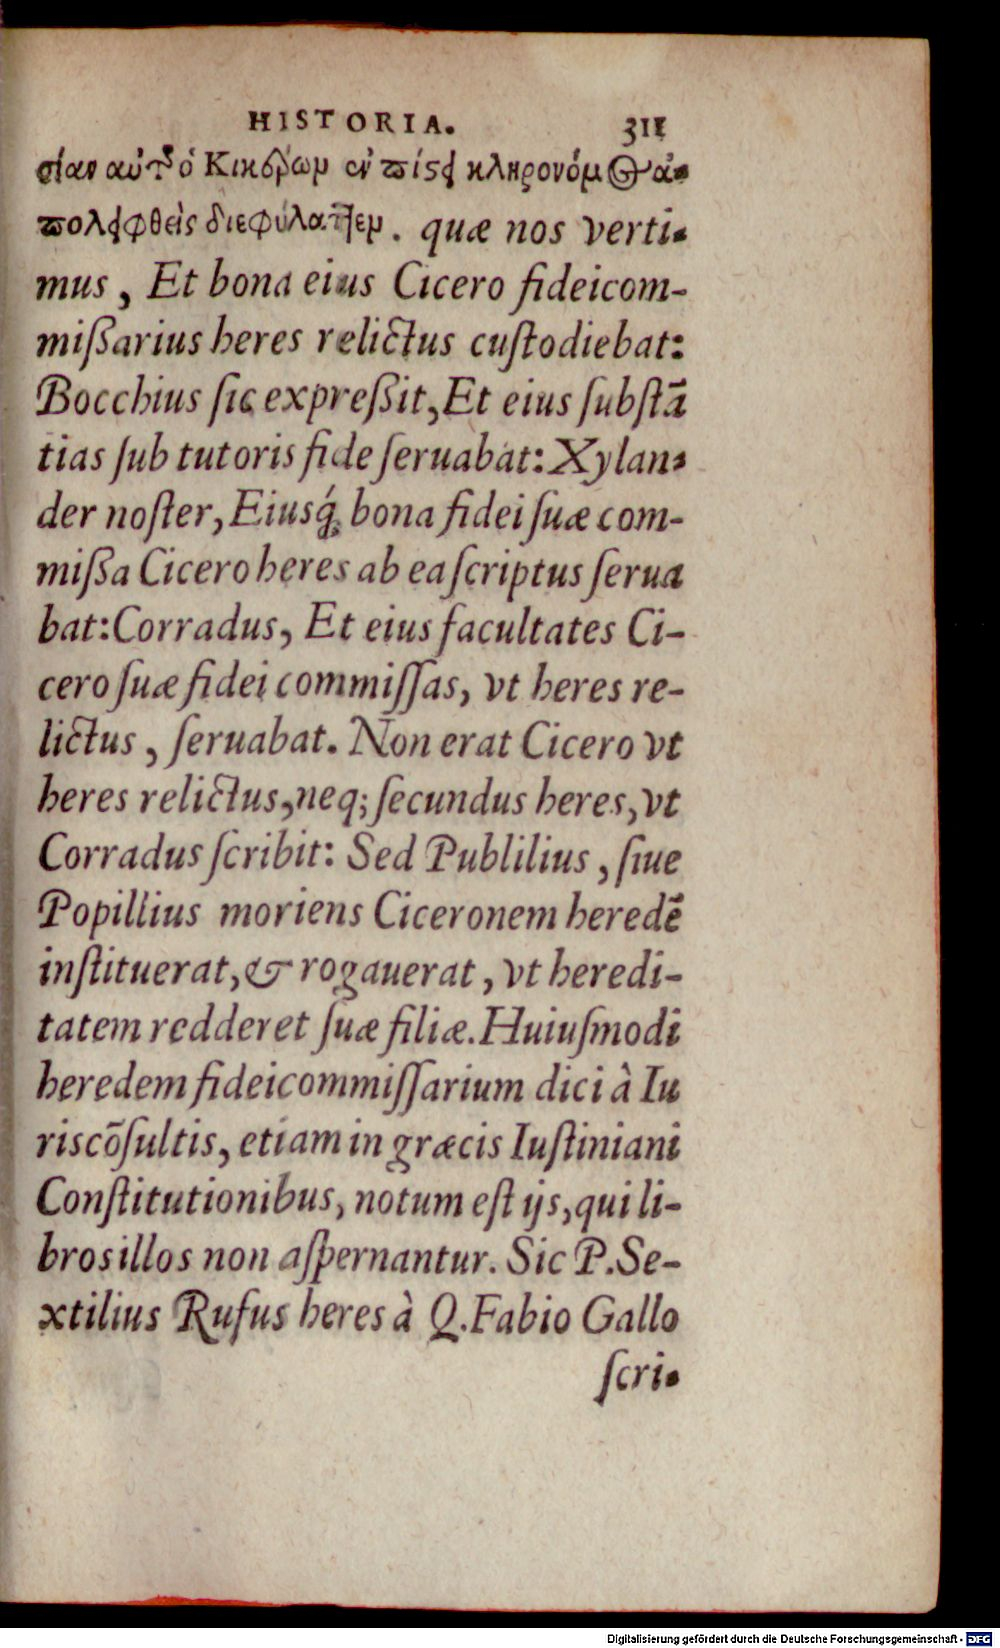 HISTORIA. 311
σίαν αὐτῆς ὁ Κικέρων ἐν πίστει κληρονόμος ἀ-
πολειφθεὶς διεφύλαττεν. quæ nos verti-
mus, Et bona eius Cicero fideicom-
mißarius heres relictus cuſtodiebat:
Bocchius ſic expreßit, Et eius ſubſtā
tias ſub tutoris fide ſeruabat: Xylan-
der noſter, Eiusq́; bona fidei ſuæ com-
mißa Cicero heres ab ea ſcriptus ſerua
bat: Corradus, Et eius facultates Ci-
cero ſuæ fidei commiſſas, vt heres re-
lictus, ſeruabat. Non erat Cicero vt
heres relictus, neq; ſecundus heres, vt
Corradus ſcribit: Sed Publilius, ſiue
Popillius moriens Ciceronem heredē
inſtituerat, & rogauerat, vt heredi-
tatem redderet ſuæ filiæ. Huiuſmodi
heredem fideicommiſſarium dici à Iu
riscōſultis, etiam in græcis Iuſtiniani
Conſtitutionibus, notum eſt ijs, qui li-
bros illos non aſpernantur. Sic P. Se-
xtilius Rufus heres à Q. Fabio Gallo
ſcri-
Digitalisierung gefördert durch die Deutsche Forschungsgemeinschaft - DFG